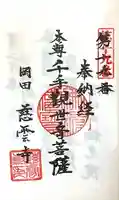 第九番
奉納経
本尊千手観世音菩薩
岡田 慈雲寺